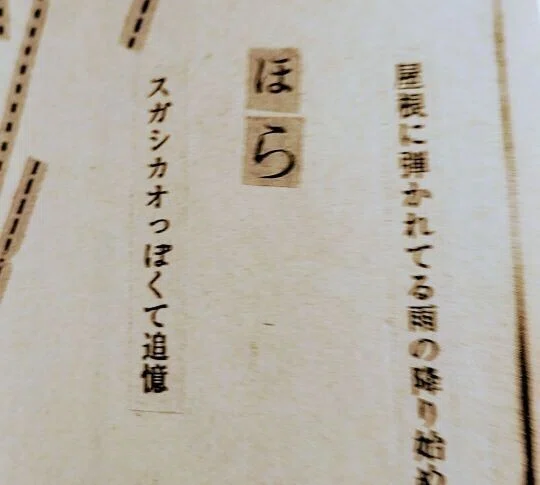 屋根に弾かれてる雨の降り始め
ほら
スガシカオっぽくて追憶